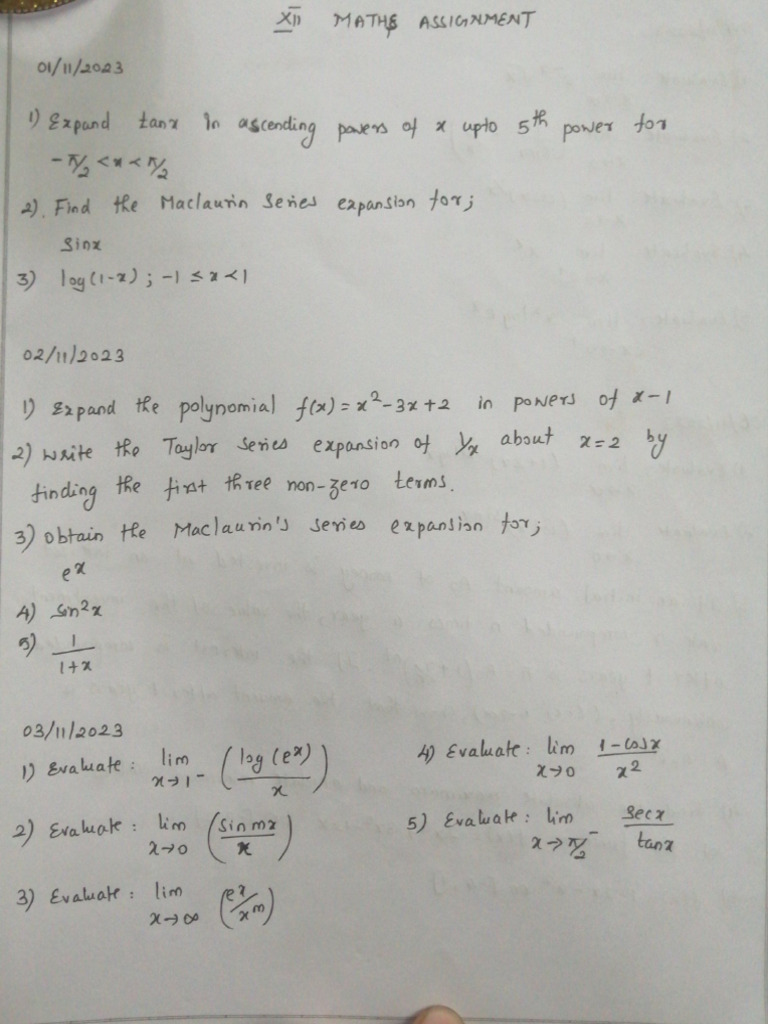 XII MATHS ASSIGNMENT
01/11/2023
1) Expand tanx in ascending powers of x upto 5th power for
-π/2 < x < π/2
2). Find the Maclaurin Series expansion for;
Sinx
3) log(1-x) ; -1 ≤ x < 1
02/11/2023
1) Expand the polynomial f(x) = x²-3x+2 in powers of x-1
2) Write the Taylor series expansion of 1/x about x=2 by
finding the first three non-zero terms.
3) Obtain the Maclaurin's series expansion for;
eˣ
4) Sin²x
5) 1/(1+x)
03/11/2023
1) Evaluate : lim x→1⁻ (log(eˣ)/x)
2) Evaluate : lim x→0 (Sin mx/x)
3) Evaluate : lim x→∞ (eˣ/xᵐ)
4) Evaluate : lim x→0 (1-cosx)/x²
5) Evaluate : lim x→π/2⁻ secx/tanx